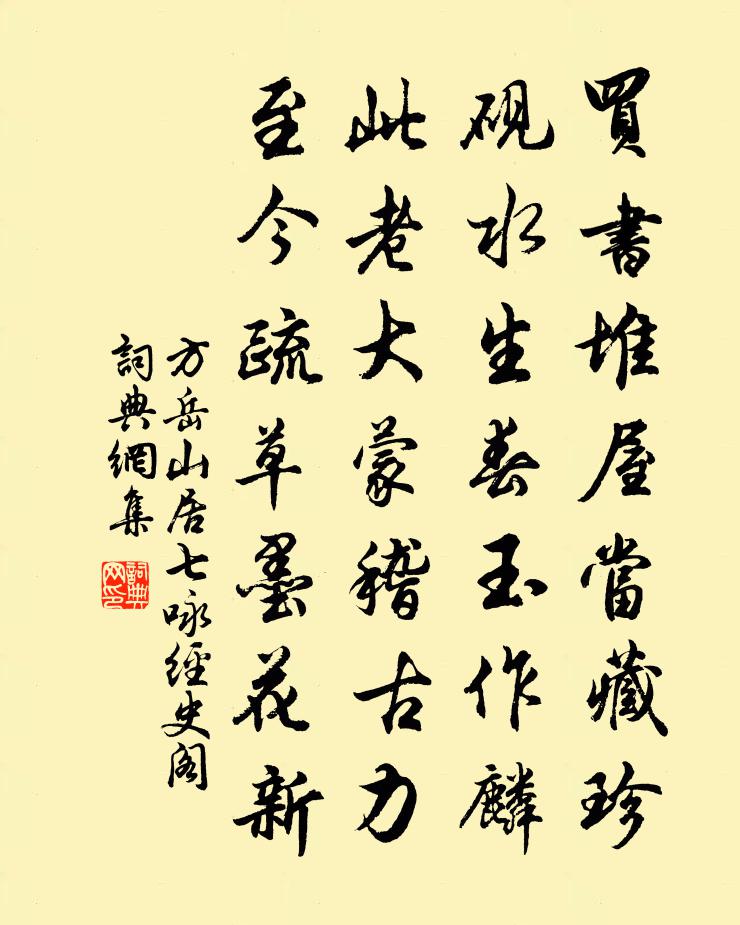 買書堆屋當藏珍
硯水生春玉作麟
此老大蒙稽古力
至今疏草墨花新
方岳山居七咏經史阁
詞典網集
詞典网印